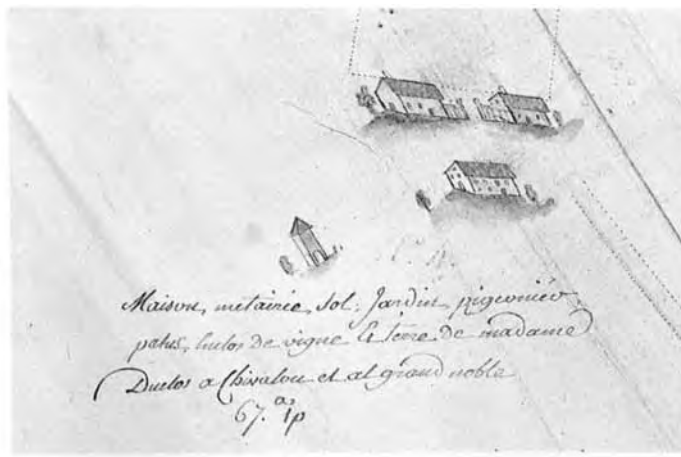 Maison, metairie, sol, Jardin, pigeonier
patus, enclos de vigne & terre de madame
Duclos a Chivalou et al grand noble
67.as 1p